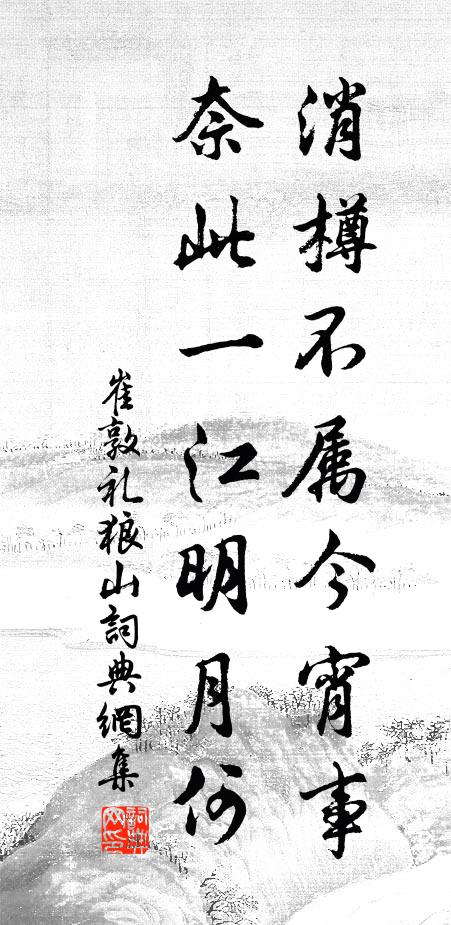 消樽不属今宵事
奈此一江明月何
崔敦礼狼山詞典網集